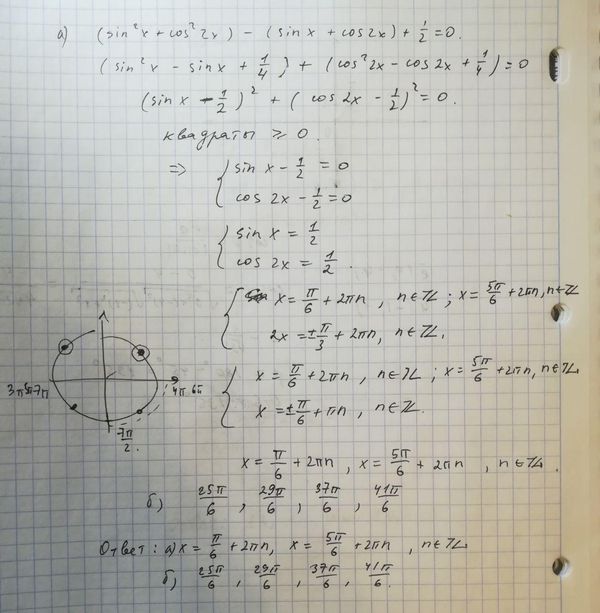 а) (sin²x + cos²2x) - (sin x + cos2x) + 1/2 = 0.
(sin²x - sinx + 1/4) + (cos²2x - cos2x + 1/4) = 0
(sin x - 1/2)² + (cos 2x - 1/2)² = 0.
квадраты ≥ 0.
=> { sin x - 1/2 = 0
cos 2x - 1/2 = 0
{ sin x = 1/2
cos 2x = 1/2.
{ x = π/6 + 2πn, n∈ℤ; x = 5π/6 + 2πn, n∈ℤ
2x = ±π/3 + 2πn, n∈ℤ.
{ x = π/6 + 2πn, n∈ℤ; x = 5π/6 + 2πn, n∈ℤ
x = ±π/6 + πn, n∈ℤ.
3π 5π 7π
4π 6π
7π/2.
x = π/6 + 2πn, x = 5π/6 + 2πn, n∈ℤ.
б) 25π/6, 29π/6, 37π/6, 41π/6
Ответ: а) x = π/6 + 2πn, x = 5π/6 + 2πn, n∈ℤ
б) 25π/6, 29π/6, 37π/6, 41π/6.